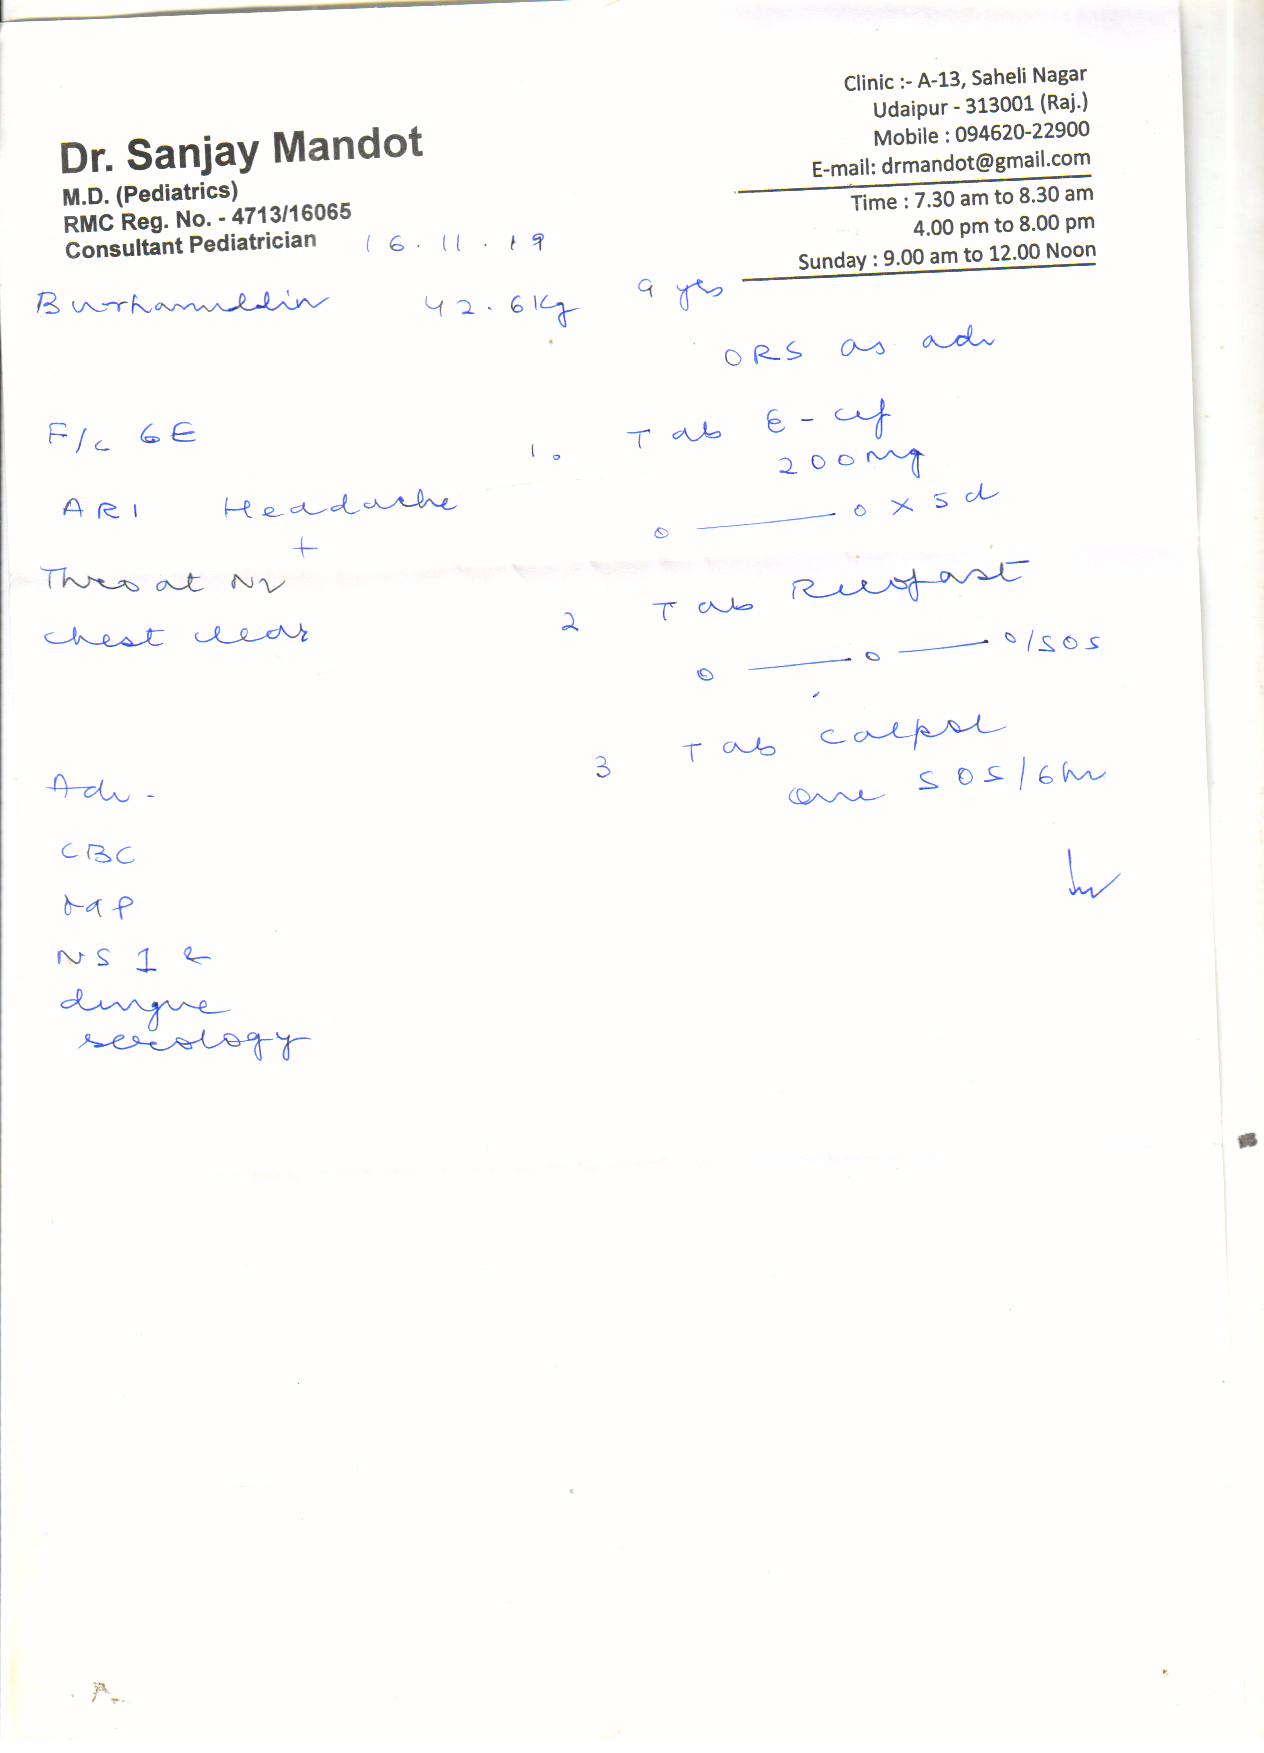 Dr. Sanjay Mandot
M.D. (Pediatrics)
RMC Reg. No. - 4713/16065
Consultant Pediatrician
Clinic :- A-13, Saheli Nagar
Udaipur - 313001 (Raj.)
Mobile : 094620-22900
E-mail: drmandot@gmail.com
Time : 7.30 am to 8.30 am
4.00 pm to 8.00 pm
Sunday : 9.00 am to 12.00 Noon
16.11.19
Burhanuddin 42.6 Kg 9 yrs
ORS as adv
F/c GE
ARI Headache
+
Throat
chest clear
Adv -
CBC
MP
NS 1 &
dengue
serology
1. Tab
200mg
0 — 0 x 5 d
2 Tab
0 — 0 — 0/SOS
3 Tab Calpol
one SOS/6hr